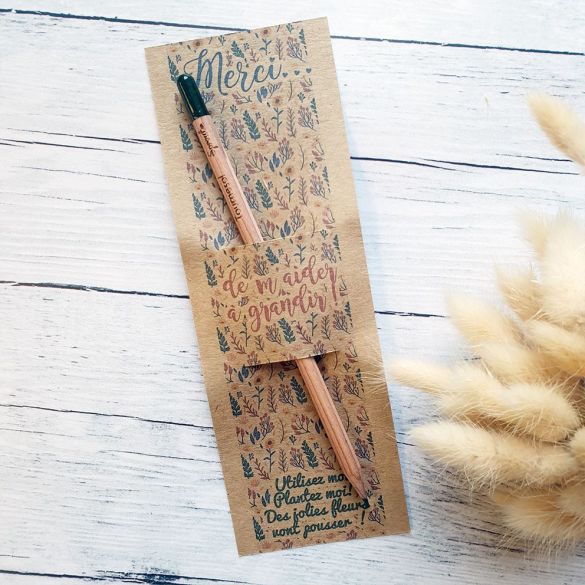 Merci...
tournesol
de m'aider
à grandir!
Utilisez moi
Plantez moi!
Des jolies fleurs
vont pousser !